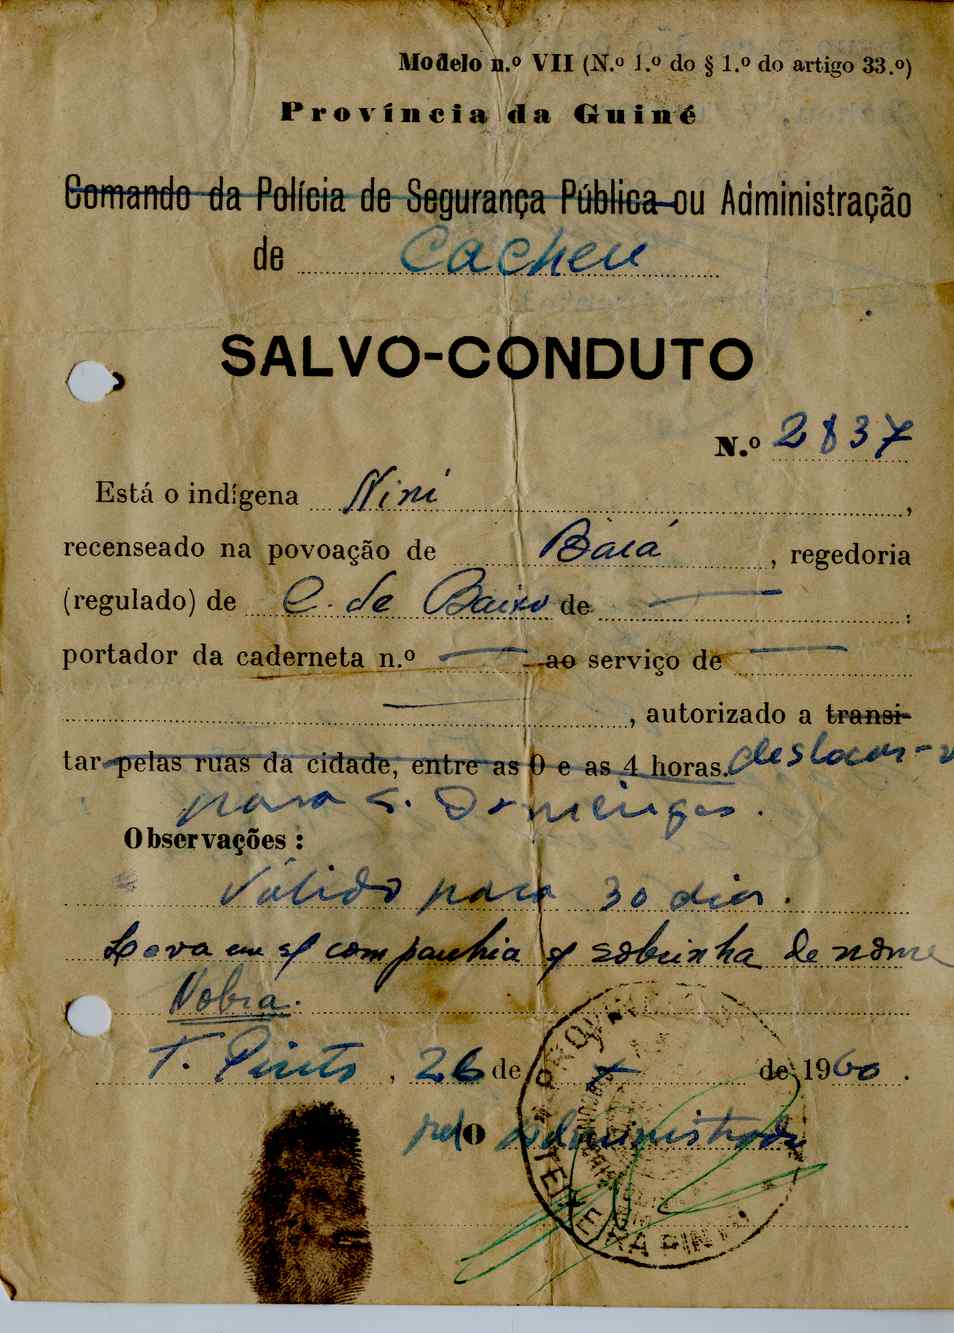 Modelo n.º VII (N.º 1.º do § 1.º do artigo 33.º)
Província da Guiné
Comando da Polícia de Segurança Pública ou Administração
de Cacheu
SALVO-CONDUTO
N.º 2837
Está o indígena Nini,
recenseado na povoação de Baiá, regedoria
(regulado) de C. de Baixo de — :
portador da caderneta n.º — ao serviço de —
—, autorizado a transi-
tar pelas ruas da cidade, entre as 0 e as 4 horas. deslocar-
para S. Domingos.
Observações :
Válido para 30 dias.
Leva em s/ companhia s/ sobrinha de nome
Nobra.
T. Pinto, 26 de de 1960.
pel O Administrador
TEIXEIRA PINTO